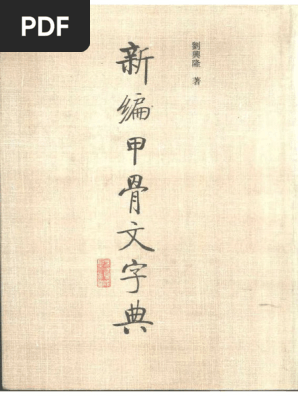 PDF
劉興隆 著
新编甲骨文字典